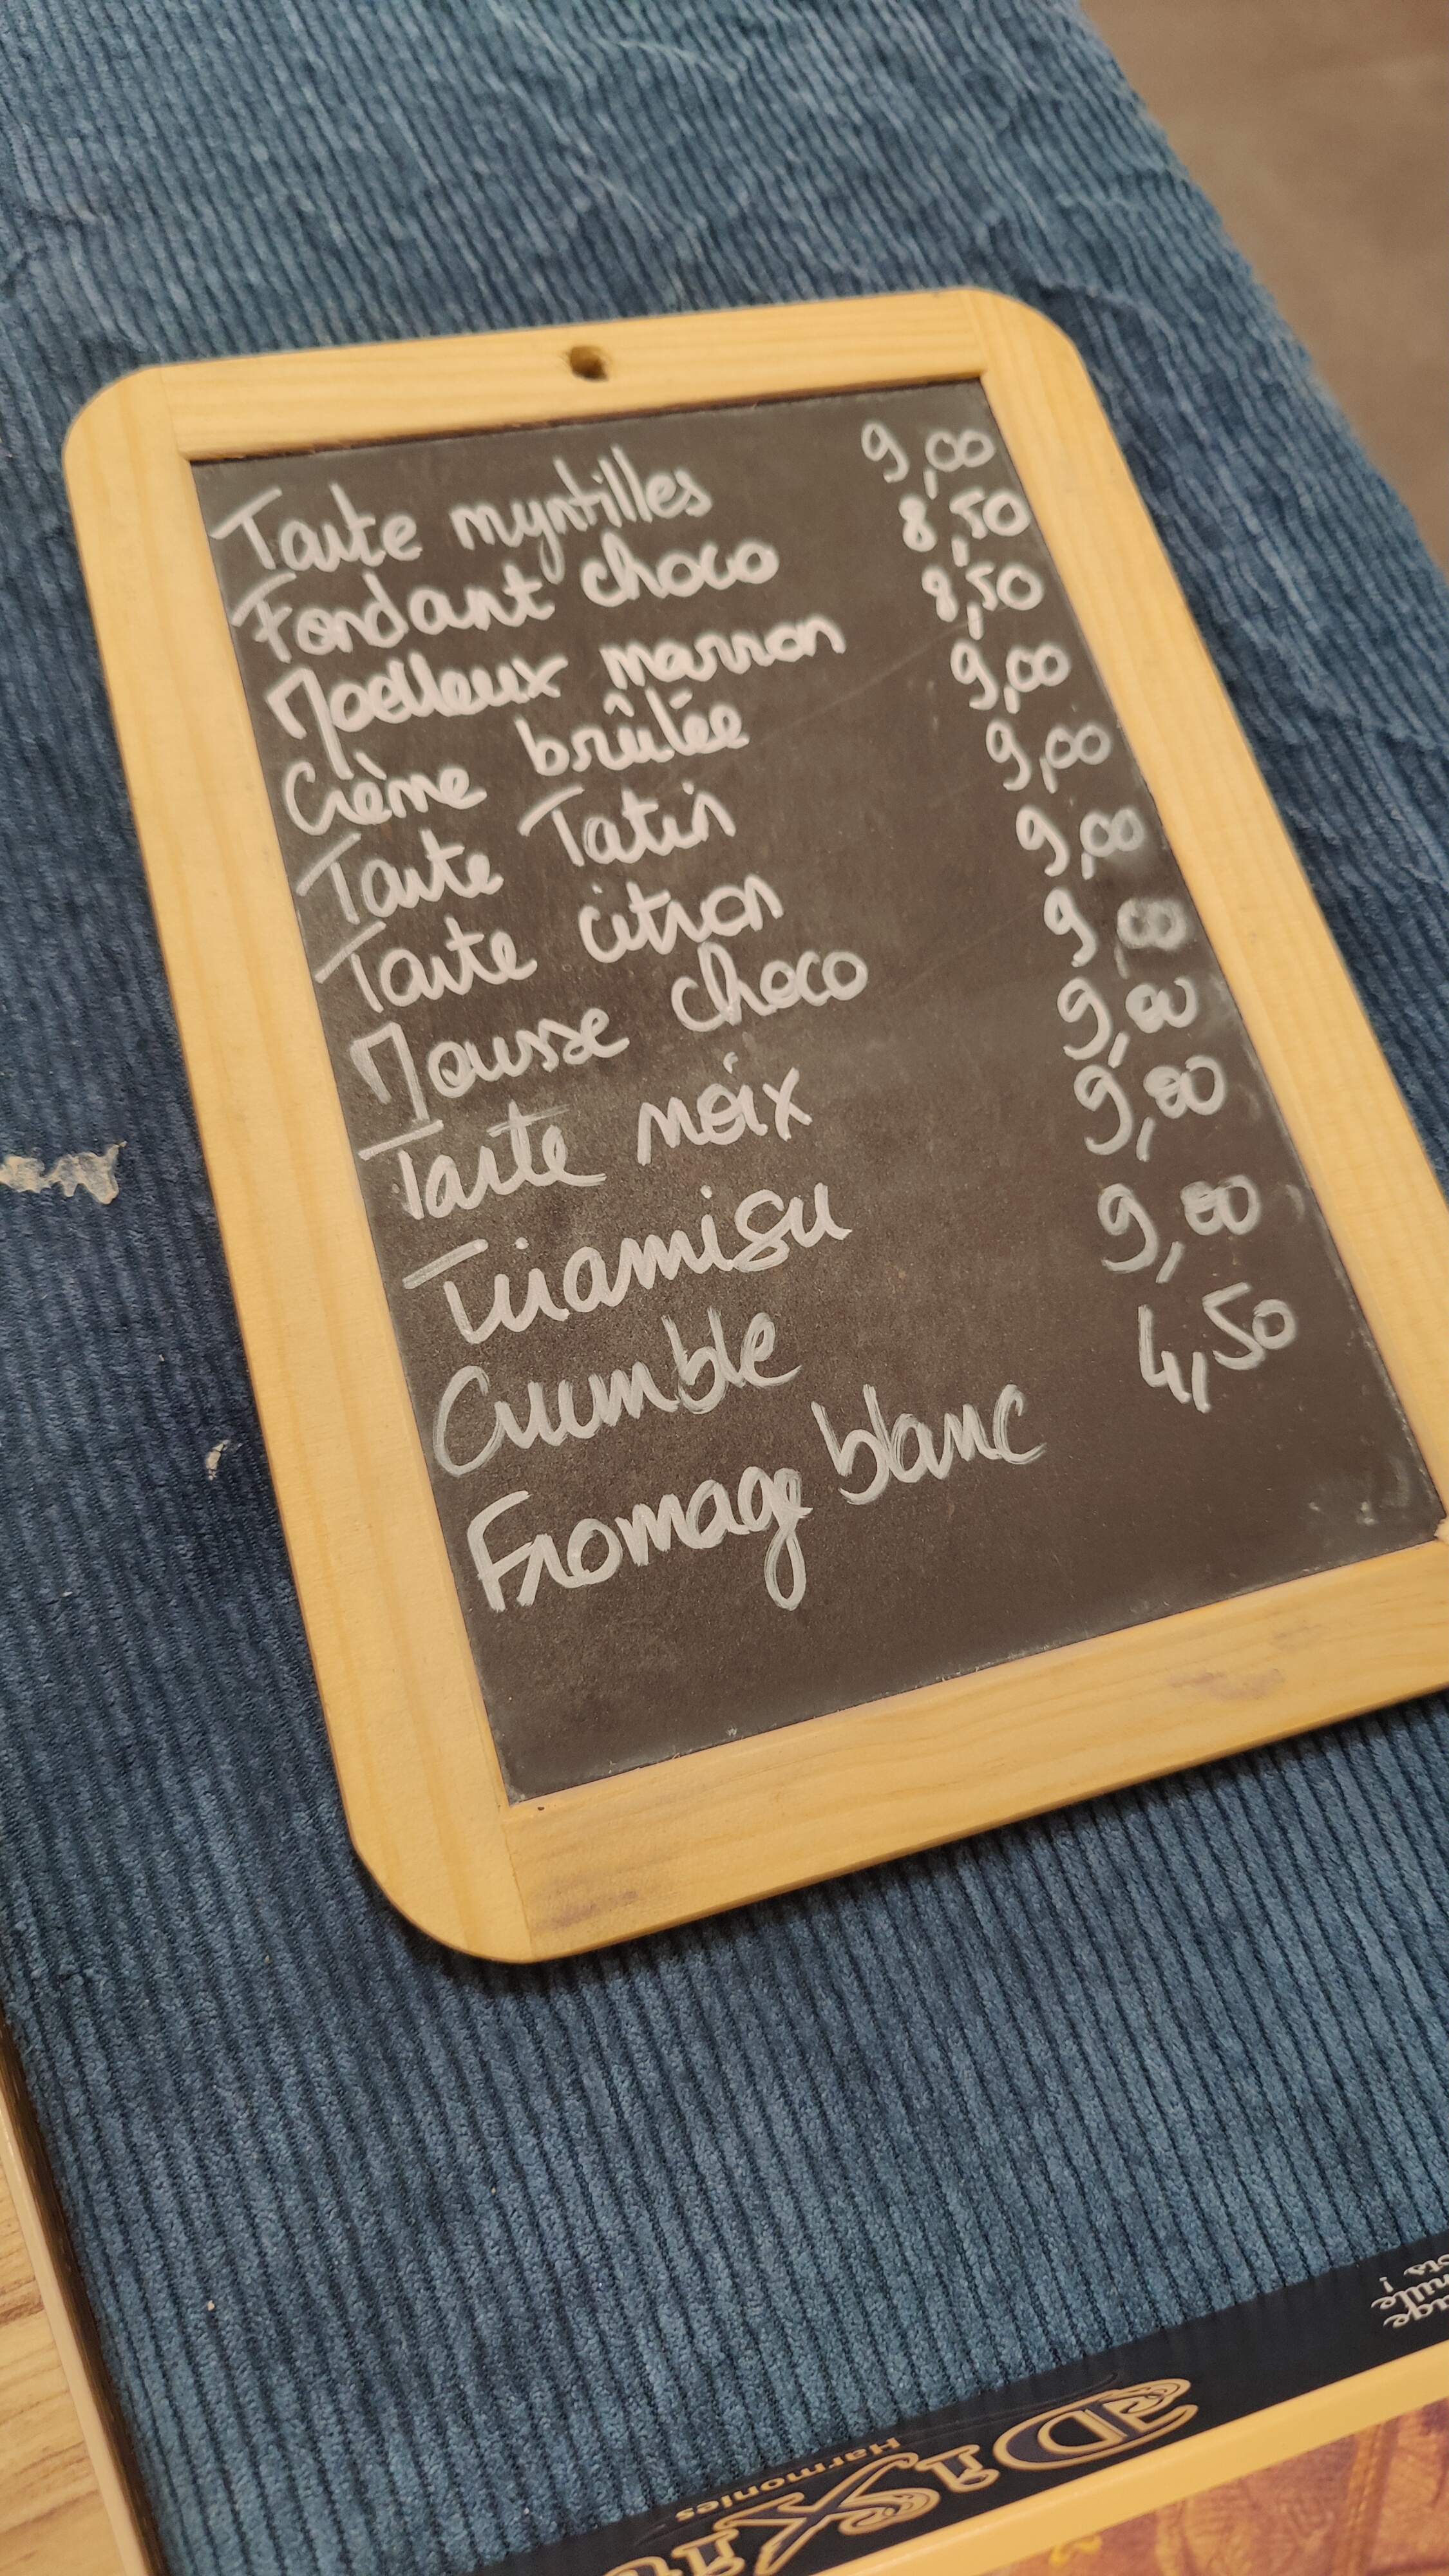 Tarte myrtilles 9,00
Fondant choco 8,50
Moelleux marron 8,50
Crème brûlée 9,00
Tarte Tatin 9,00
Tarte citron 9,00
Mousse choco 9,00
Tarte noix 9,00
Tiramisu 9,00
Crumble 9,00
Fromage blanc 4,50
DiX
Harmonies